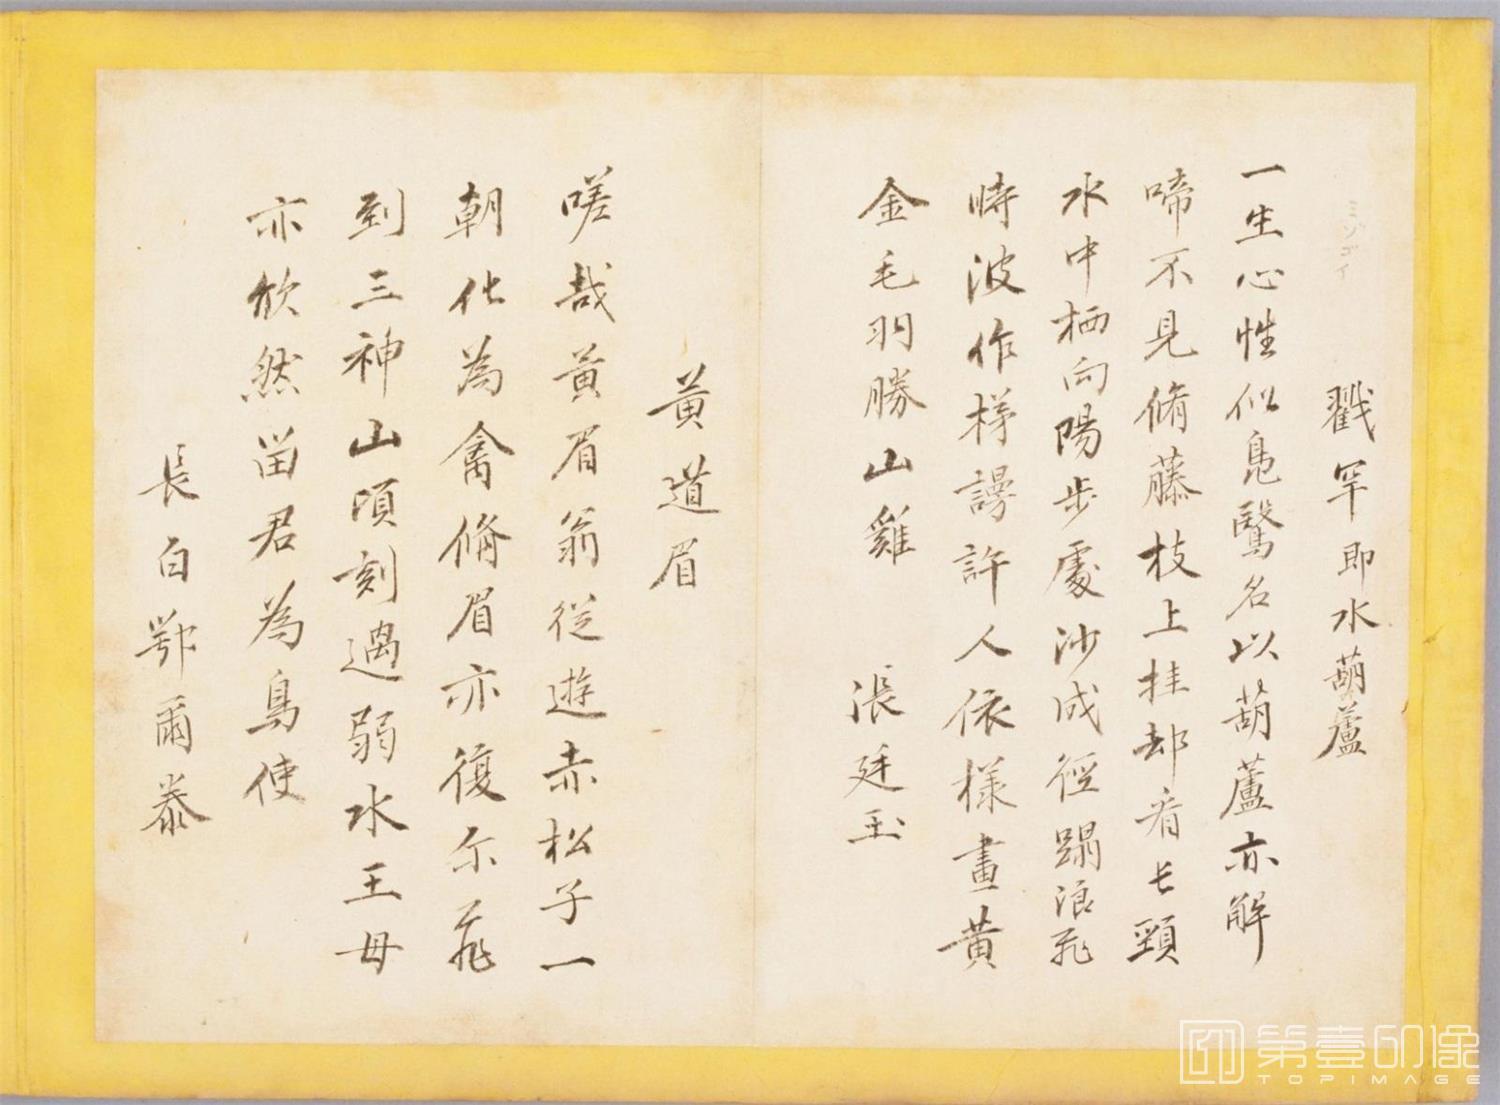 戳罕即水葫蘆
一生心性似鳧鷖名以葫蘆亦解
啼不見脩藤枝上挂却看長頸
水中栖向陽步處沙成徑蹋浪飛
時波作梯謾許人依樣畫黃
金毛羽勝山雞 張廷玉
黃道眉
嗟哉黃眉翁從遊赤松子一
朝化為禽脩眉亦復尔飛
到三神山頃刻過弱水王母
亦欣然留君為鳥使
長白鄂爾泰
ミゾゴイ
第壹印像
TOPIMAGE